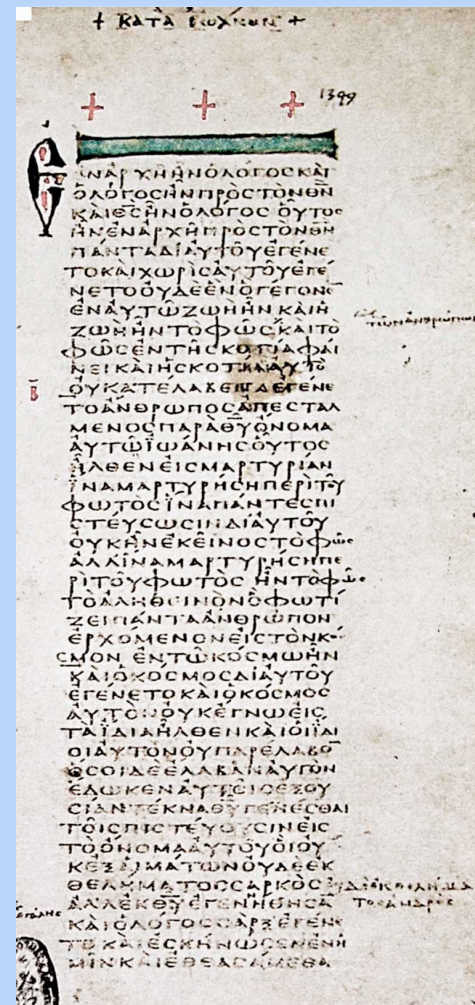 + ΚΑΤΑ ΙΩΑΝΗΝ +
1349
ΕΝΑΡΧΗΗΝΟΛΟΓΟϹΚΑΙ
ΟΛΟΓΟϹΗΝΠΡΟϹΤΟΝΘΝ
ΚΑΙΘϹΗΝΟΛΟΓΟϹ ΟΥΤΟϹ
ΗΝΕΝΑΡΧΗΠΡΟϹΤΟΝΘΝ
ΠΑΝΤΑΔΙΑΥΤΟΥΕΓΕΝΕ
ΤΟΚΑΙΧΩΡΙϹΑΥΤΟΥΕΓΕ
ΝΕΤΟΟΥΔΕΕΝΟΓΕΓΟΝΕ
ΕΝΑΥΤΩΖΩΗΗΝΚΑΙΗ
ΖΩΗΗΝΤΟΦΩϹΚΑΙΤΟ
ΤΩΝΑΝΘΡΩΠΩΝ
ΦΩϹΕΝΤΗϹΚΟΤΙΑΦΑΙ
ΝΕΙΚΑΙΗϹΚΟΤΙΑΑΥΤΟ
ΟΥΚΑΤΕΛΑΒΕΝΕΓΕΝΕ
ΤΟΑΝΘΡΩΠΟϹΑΠΕϹΤΑΛ
ΜΕΝΟϹΠΑΡΑΘΥΟΝΟΜΑ
ΑΥΤΩΙΩΑΝΗϹΟΥΤΟϹ
ΗΛΘΕΝΕΙϹΜΑΡΤΥΡΙΑΝ
ΙΝΑΜΑΡΤΥΡΗϹΗΠΕΡΙΤΟΥ
ΦΩΤΟϹΙΝΑΠΑΝΤΕϹΠΙ
ϹΤΕΥϹΩϹΙΝΔΙΑΥΤΟΥ
ΟΥΚΗΝΕΚΕΙΝΟϹΤΟΦΩϹ
ΑΛΛΙΝΑΜΑΡΤΥΡΗϹΗΠΕ
ΡΙΤΟΥΦΩΤΟϹ ΗΝΤΟΦΩϹ
ΤΟΑΛΗΘΕΙΝΟΝΟΦΩΤΙ
ΖΕΙΠΑΝΤΑΑΝΘΡΩΠΟΝ
ΕΡΧΟΜΕΝΟΝΕΙϹΤΟΝΚΟ
ϹΜΟΝ ΕΝΤΩΚΟϹΜΩΗΝ
ΚΑΙΟΚΟϹΜΟϹΔΙΑΥΤΟΥ
ΕΓΕΝΕΤΟΚΑΙΟΚΟϹΜΟϹ
ΑΥΤΟΝΟΥΚΕΓΝΩΕΙϹ
ΤΑΙΔΙΑΗΛΘΕΝΚΑΙΟΙΙΔΙ
ΟΙΑΥΤΟΝΟΥΠΑΡΕΛΑΒΟ
ΟϹΟΙΔΕΕΛΑΒΑΝΑΥΤΟΝ
ΕΔΩΚΕΝΑΥΤΟΙϹΕΞΟΥ
ϹΙΑΝΤΕΚΝΑΘΥΓΕΝΕϹΘΑΙ
ΤΟΙϹΠΙϹΤΕΥΟΥϹΙΝΕΙϹ
ΤΟΟΝΟΜΑΑΥΤΟΥΟΙΟΥ
ΚΕΞΑΙΜΑΤΩΝΟΥΔΕΕΚ
ΘΕΛΗΜΑΤΟϹϹΑΡΚΟϹ
ΟΥΔΕΕΚΘΕΛΗΜΑ
ΤΟϹΑΝΔΡΟϹ
ΑΛΛΕΚΘΥΕΓΕΝΗΘΗϹΑ
ΚΑΙΟΛΟΓΟϹϹΑΡΞΕΓΕΝΕ
ΤΟΚΑΙΕϹΚΗΝΩϹΕΝΕΝΗ
ΜΙΝΚΑΙΕΘΕΑϹΑΜΕΘΑ